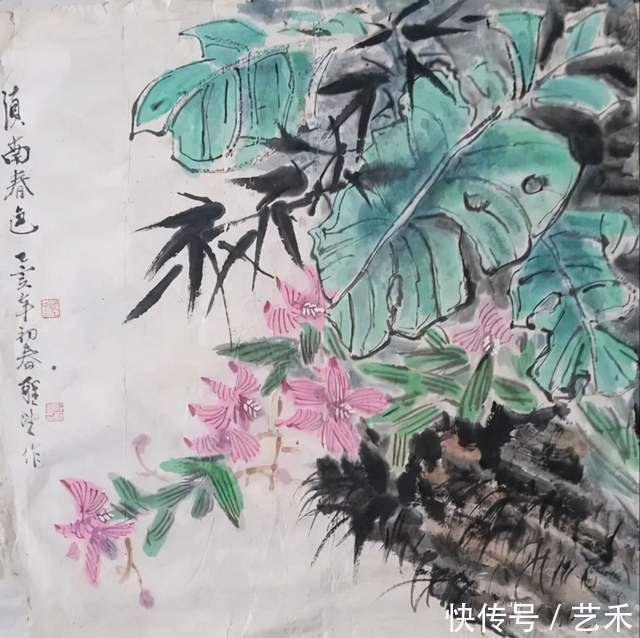 滇南春色 乙亥年初春 作
快传号 / 艺禾